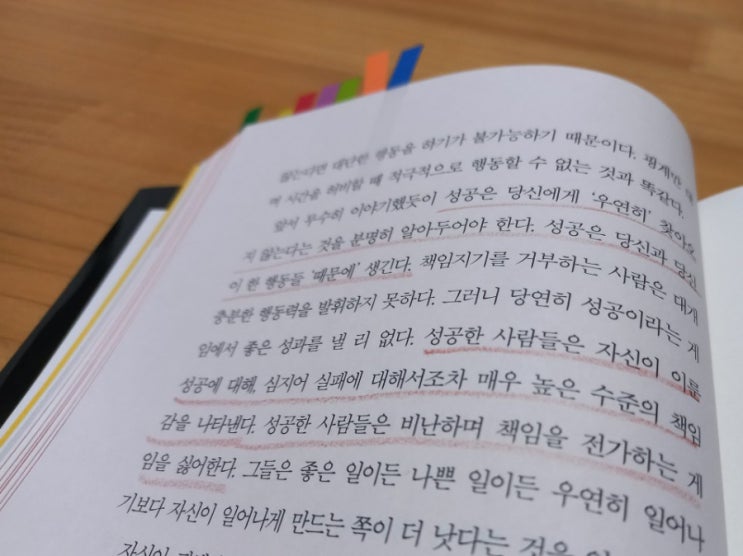 않는다면 대단한 행동을 하기가 불가능하기 때문이다. 핑계만 대
며 시간을 허비할 때 적극적으로 행동할 수 없는 것과 똑같다.
앞서 무수히 이야기했듯이 성공은 당신에게 ‘우연히’ 찾아오
지 않는다는 것을 분명히 알아두어야 한다. 성공은 당신과 당신
이 한 행동들 ‘때문에’ 생긴다. 책임지기를 거부하는 사람은 대개
충분한 행동력을 발휘하지 못하다. 그러니 당연히 성공이라는 게
임에서 좋은 성과를 낼 리 없다. 성공한 사람들은 자신이 이룬
성공에 대해, 심지어 실패에 대해서조차 매우 높은 수준의 책임
감을 나타낸다. 성공한 사람들은 비난하며 책임을 전가하는 게
임을 싫어한다. 그들은 좋은 일이든 나쁜 일이든 우연히 일어나
기보다 자신이 일어나게 만드는 쪽이 더 낫다는 것을
자신이